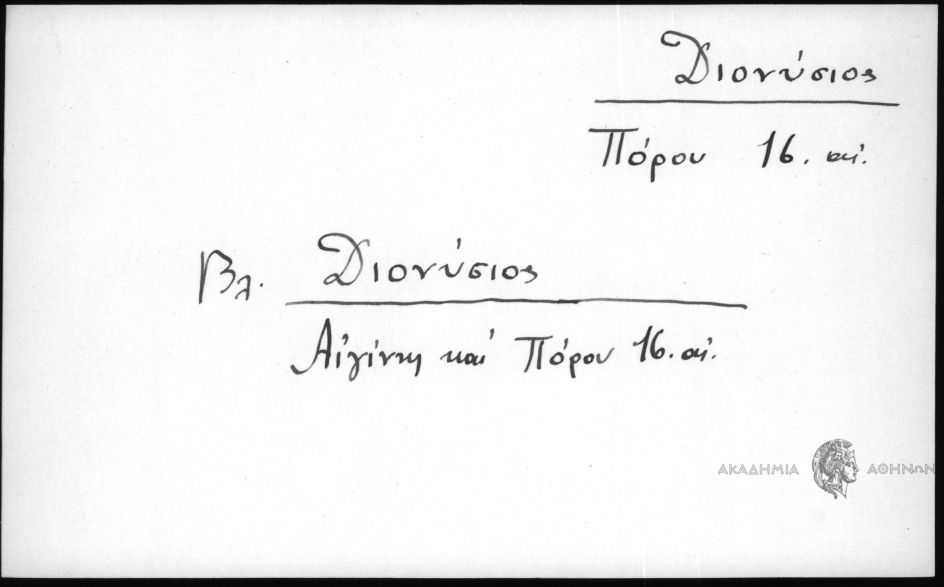 Διονύσιος
Πόρου 16. αἰ.
Βλ. Διονύσιος
Αἰγίνης καὶ Πόρου 16. αἰ.
ΑΚΑΔΗΜΙΑ ΑΘΗΝΩΝ